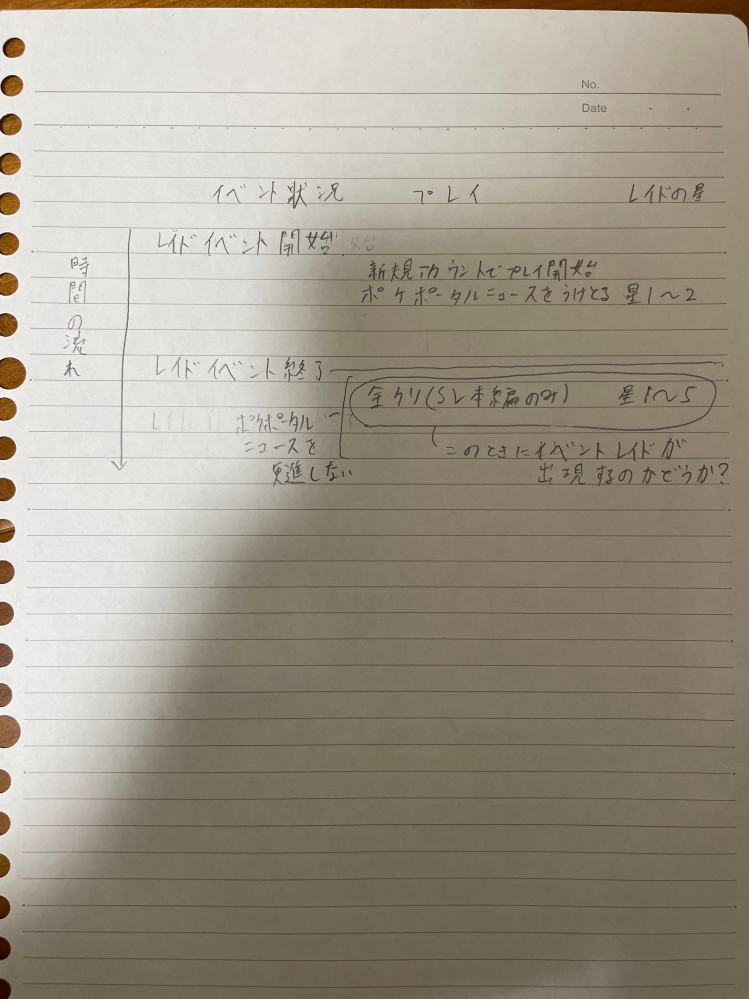 No.
Date
イベント状況 プレイ レイドの星
時間の流れ
レイドイベント開始
新規アカウントでプレイ開始
ポケポータルニュースをうけとる 星1〜2
レイドイベント終了
全クリ(SV本編のみ) 星1〜5
ポケポータル
ニュースを
更進しない
このときにイベントレイドが
出現するのかどうか?